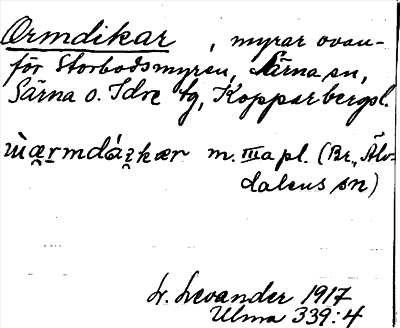 Ormdikar, myrar ovan-
för Storbodsmyren, Särna sn,
Särna o. Idre tg, Kopparbergsl.
m. IIIa pl. (Br., Älv-
dalens sn)
L. Levander 1917
Ulma 339:4